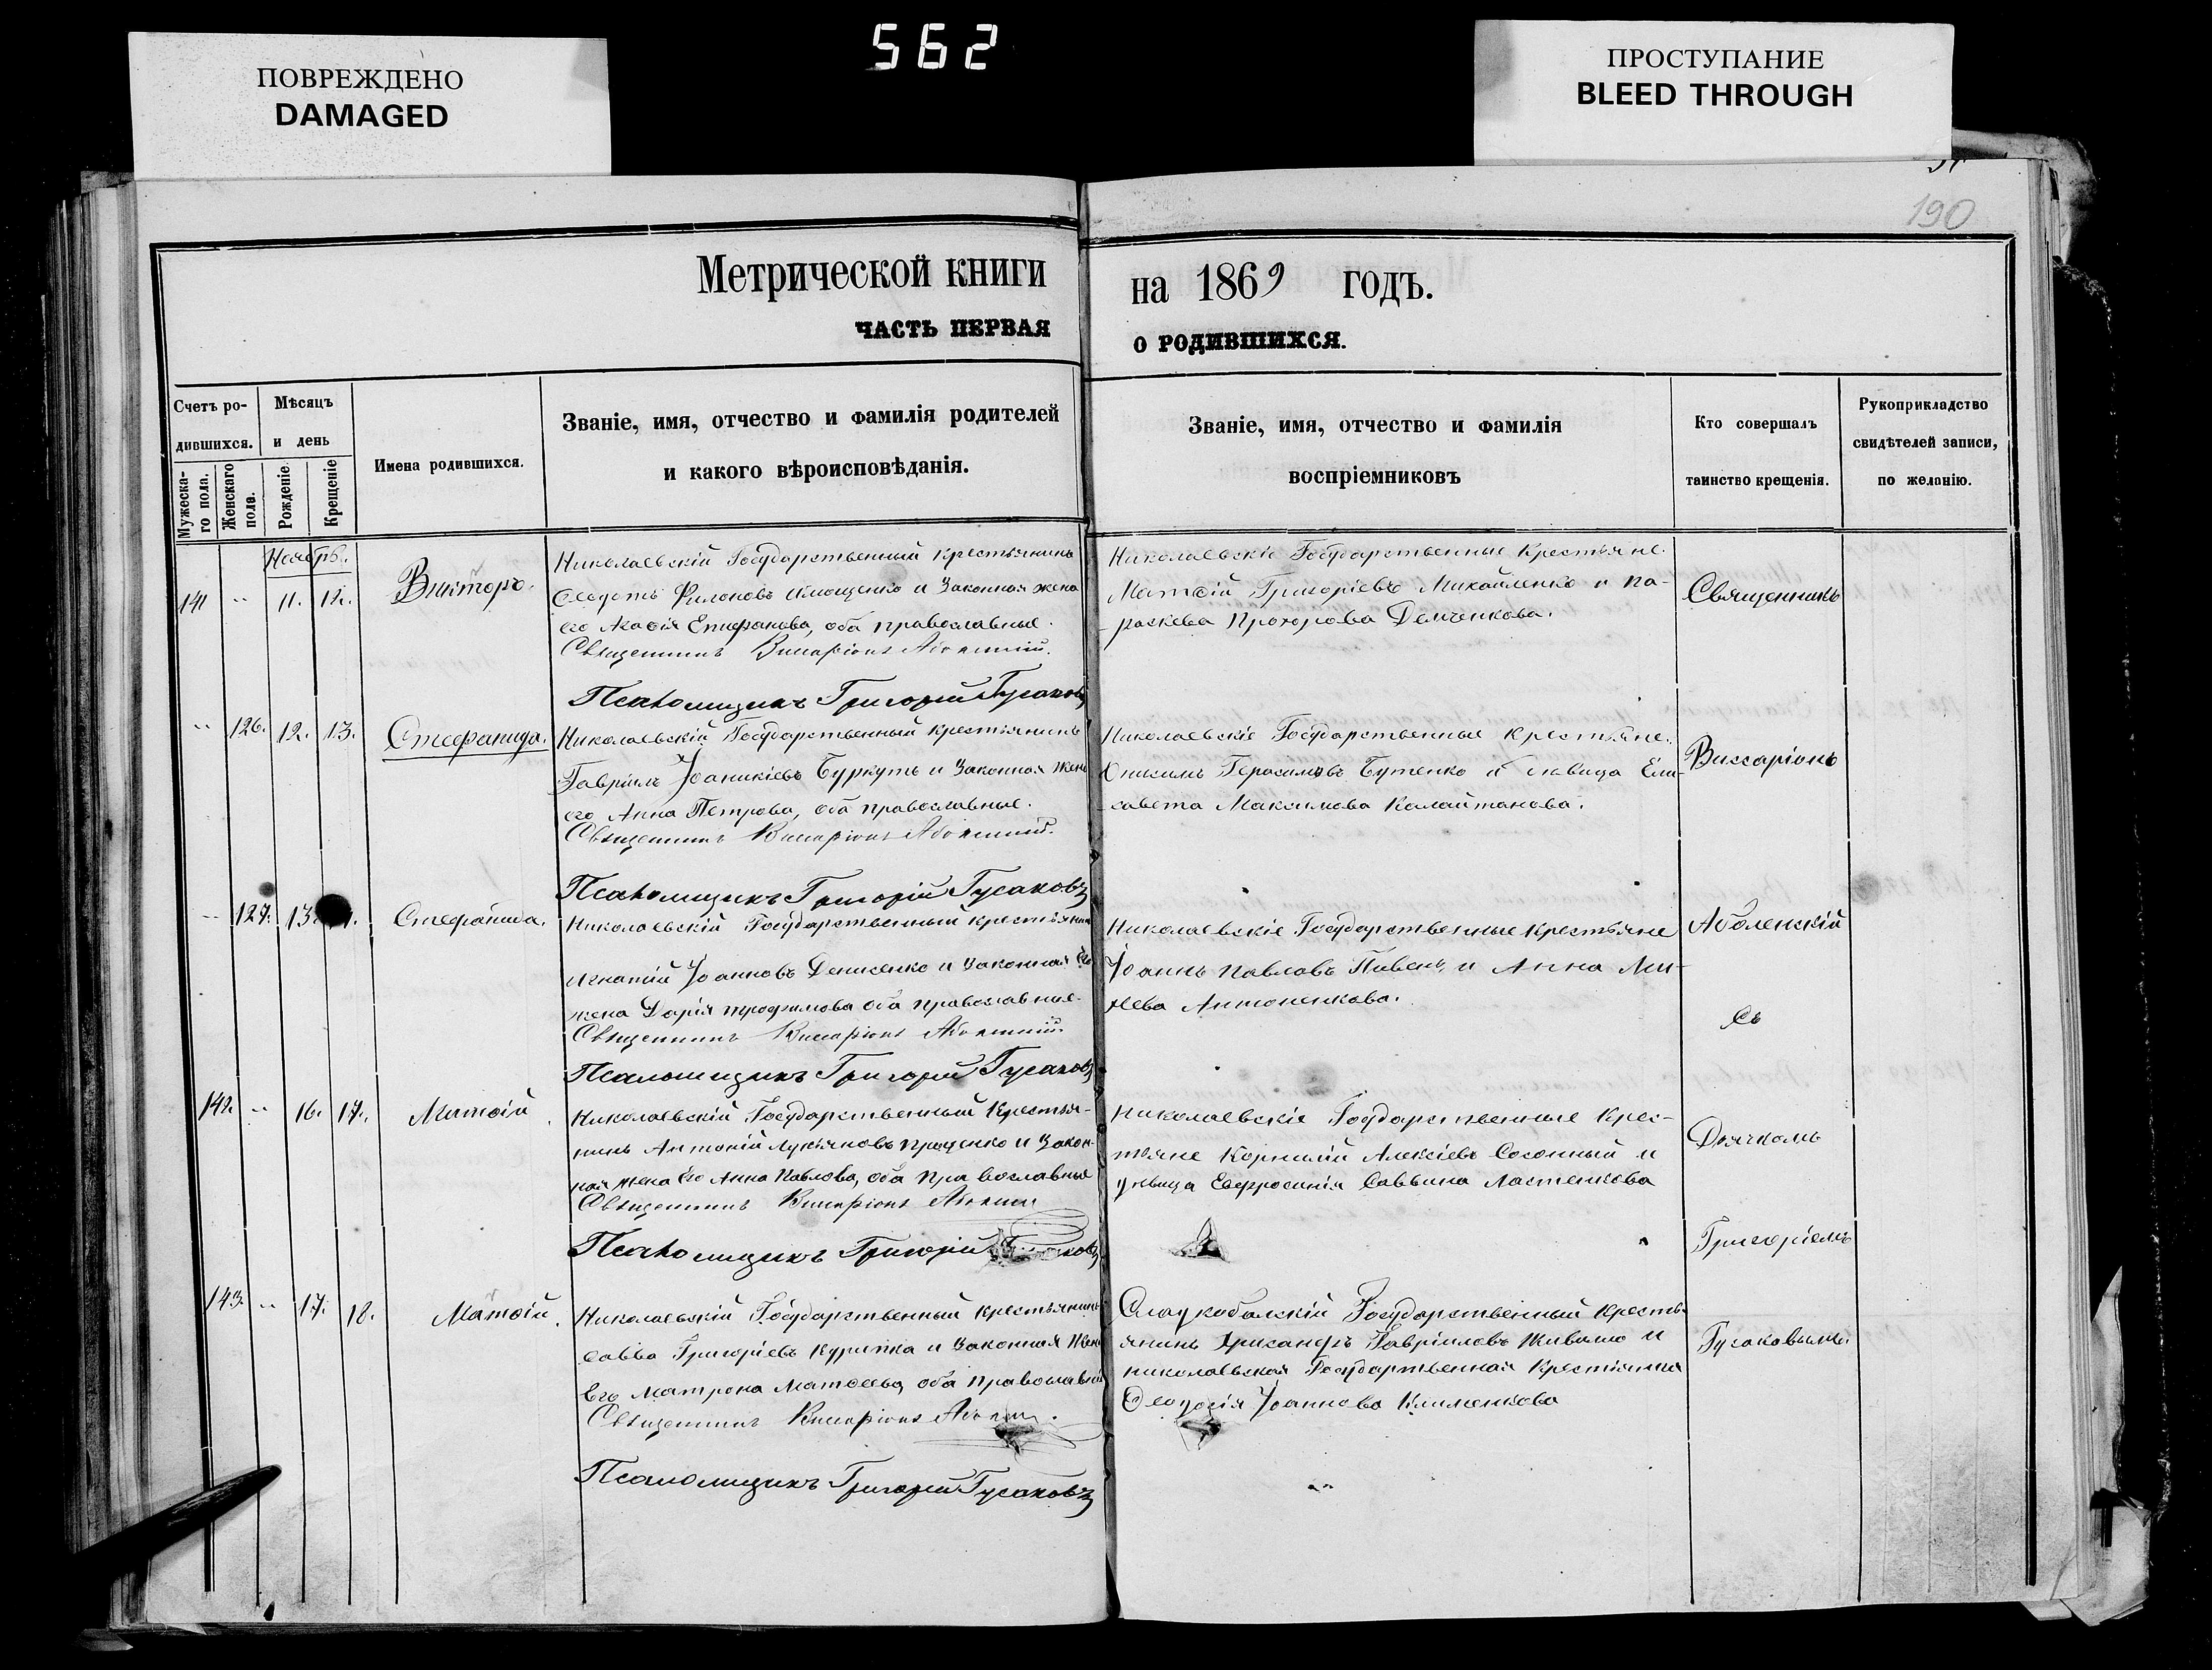 562
ПОВРЕЖДЕНО
DAMAGED
ПРОСТУПАНИЕ
BLEED THROUGH
190
Метрической книги на 1869 годъ.
ЧАСТЬ ПЕРВАЯ о РОДИВШИХСЯ.
Счетъ ро-
дившихся.
Мужеска-
го пола.
Женскаго
пола.
Мѣсяцъ
и день
Рожденіе.
Крещеніе
Имена родившихся.
Званіе, имя, отчество и фамилія родителей
и какого вѣроисповѣданія.
Званіе, имя, отчество и фамилія
воспріемниковъ
Кто совершалъ
таинство крещенія.
Рукоприкладство
свидѣтелей записи,
по желанію.
Ноябрь.
141 " 11. 12. Викторъ.
Николаевскій Государственный крестьянинъ
Ѳеодотъ Филоновъ и Законная жена
его Агафія Епифанова, оба православные.
Священникъ Виссаріонъ Аболенскій.
Псаломщикъ Григорій Гусаковъ
Николаевскіе Государственные Крестьяне.
Матѳій Григоріевъ Михайленко и Па-
раскева Прохорова Демченкова.
" 126. 12. 13. Стефанида.
Николаевскій Государственный крестьянинъ
Гавріилъ Іоаникіевъ Буркутъ и Законная жена
его Анна Петрова, оба православные.
Священникъ Виссаріонъ Аболенскій.
Псаломщикъ Григорій Гусаковъ
Николаевскіе Государственные крестьяне.
Онисимъ Герасимовъ Бутенко и дѣвица Ели-
савета Максимова Калайтанова.
" 127. 13. Стефанида.
Николаевскій Государственный крестьянинъ
Игнатій Іоанновъ Денисенко и Законная Его
жена Дарія Трофимова оба православные.
Священникъ Виссаріонъ Аболенскій.
Псаломщикъ Григорій Гусаковъ
Николаевскіе Государственные крестьяне
Іоаннъ Павловъ Пивень и Анна Ми-
хеева Антоненкова.
142. " 16. 17. Матѳій.
Николаевскій Государственный Крестья-
нинъ Антоній Лукьяновъ Проценко и Закон-
ная жена Его Анна Павлова, оба православные
Священникъ Виссаріонъ
Псаломщикъ Григорій
Николаевскіе Государственные Крес-
тьяне Корнилій Алексіевъ Сосонный и
дѣвица Евфросинія Саввина Ластенкова
143. " 17. 18. Матѳій.
Николаевскій Государственный крестьянинъ
Савва Григоріевъ Курипка и Законная Жена
Его Матрона Матѳеева, оба православные
Священникъ Виссаріонъ
Псаломщикъ Григорій Гусаковъ
Сладкобалскій Государственный кресть-
янинъ Хрисанфъ Гавріиловъ и
николаевская Государственная Крестьянка
Ѳеодосія Іоаннова Клименкова
Священникъ
Виссаріонъ
Аболенскій
Съ
Дьячкомъ
Григоріемъ
Гусаковымъ.